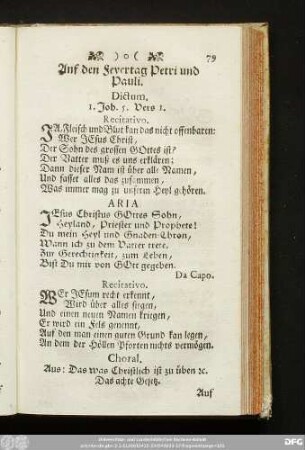 )o(
79
Auf den Feyertag Petri und
Pauli.
Dictum.
1. Joh. 5. Vers 1.
Recitativo.
JA, Fleisch und Blut kan das nicht offenbaren:
Wer JEsus Christ,
Der Sohn des grossen GOttes ist?
Der Vatter muß es uns erklären;
Dann dieser Nam ist über alle Namen,
Und fasset alles das zusammen,
Was immer mag zu unserm Heyl gehören.
ARIA
JEsus Christus GOttes Sohn,
Heyland, Priester und Prophete!
Du mein Heyl und Gnaden-Thron,
Wann ich zu dem Vatter trete.
Zur Gerechtigkeit, zum Leben,
Bist Du mir von GOtt gegeben.
Da Capo.
Recitativo.
WEr JEsum recht erkennt,
Wird über alles siegen,
Und einen neuen Namen kriegen,
Er wird ein Fels genennt,
Auf den man einen guten Grund kan legen,
An dem der Höllen Pforten nichts vermögen.
Choral.
Aus: Das was Christlich ist zu üben ꝛc.
Das achte Gesetz.
Auf
DFG